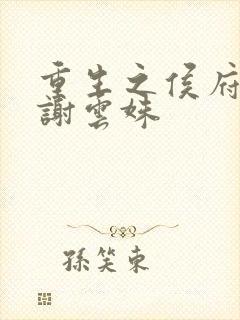 重生之侯府
謝雲姝
孫笑東